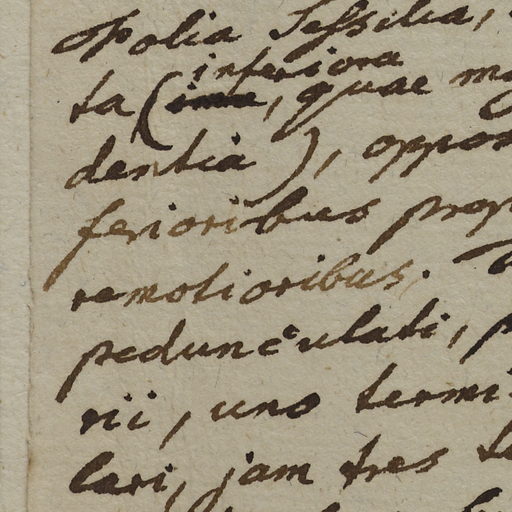 Folia sessilia,
inferiora
ta (imae, quae ma
dentia), oppon
ferioribus prop
remotioribus.
pedunculati, p
rii, uno termi
lari, jam tres